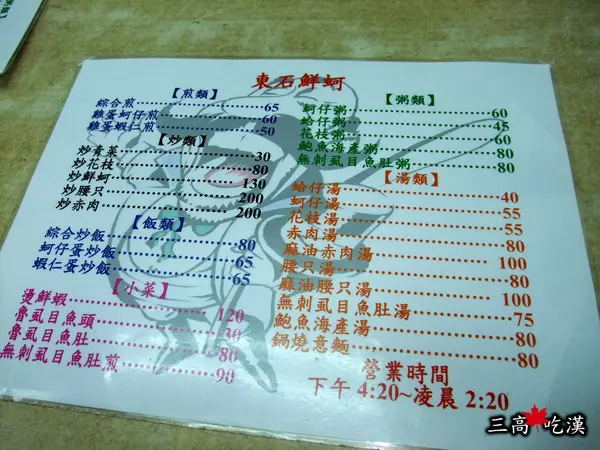 東石鮮蚵
【煎類】
綜合煎 65
雞蛋蚵仔煎 60
雞蛋蝦仁煎 50
【炒類】
炒青菜 30
炒花枝 80
炒鮮蚵 130
炒腰只 200
炒赤肉 200
【飯類】
綜合炒飯 80
蚵仔蛋炒飯 65
蝦仁蛋炒飯 65
【小菜】
燙鮮蝦 120
魯虱目魚頭 30
魯虱目魚肚 80
無刺虱目魚肚煎 90
【粥類】
蚵仔粥 60
蛤仔粥 45
花枝粥 60
鮑魚海產粥 80
無刺虱目魚肚粥 80
【湯類】
蛤仔湯 40
蚵仔湯 55
花枝湯 55
赤肉湯 80
麻油赤肉湯 100
腰只湯 80
麻油腰只湯 100
無刺虱目魚肚湯 75
鮑魚海產湯 80
鍋燒意麵 80
營業時間
下午 4:20~凌晨 2:20
三高 吃漢